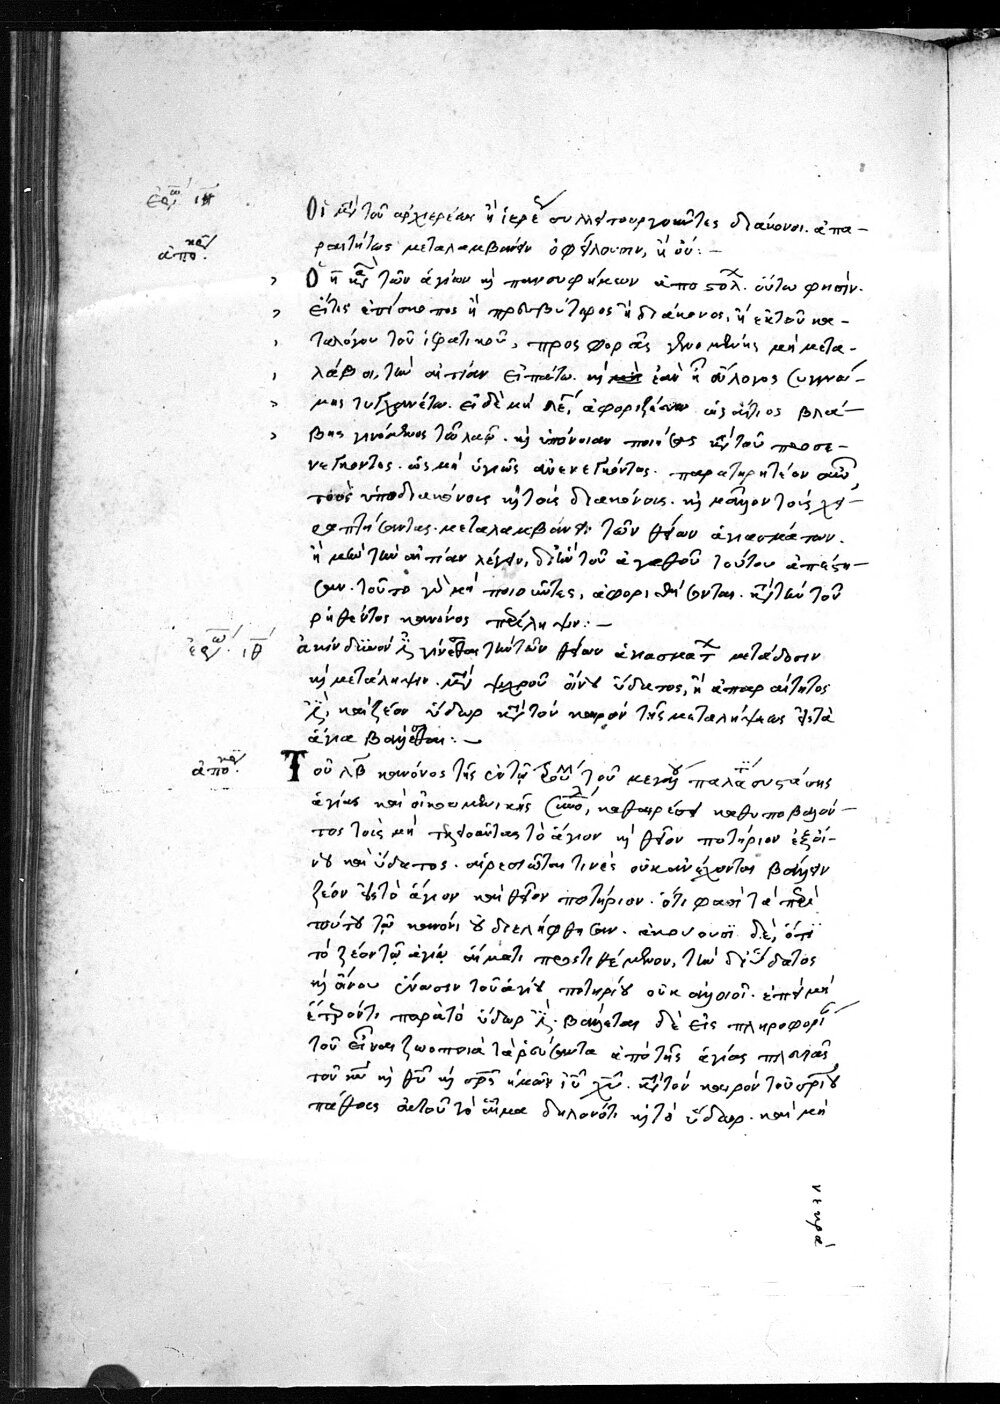 ἐρώ ιη
Οἱ μετὰ τοῦ ἀρχιερέως ἢ ἱερέ συλλειτουργοῦντες διάκονοι. ἀπα-
ἀπό κρ
ραιτήτως μεταλαμβάνειν ὀφείλουσιν, ἢ οὔ:-
Ὁ η κα τῶν ἁγίων καὶ πανευφήμων ἀποστόλ. οὕτω φησίν.
εἴτις ἐπίσκοπος ἢ πρεσβύτερος ἢ διάκονος, ἢ ἐκ τοῦ κα-
ταλόγου τοῦ ἱερατικοῦ, προσφορᾶς γενομένης μὴ μετα-
λάβοι, τὴν αἰτίαν εἰπάτω. καὶ ἐὰν ἢ εὔλογος συγγνώ-
μης τυγχανέτω. εἰ δὲ μὴ λέγει, ἀφοριζέσθω ὡς αἴτιος βλά-
βης γινόμενος τῷ λαῷ. καὶ ὑπόνοιαν ποιήσας κατὰ τοῦ προσε-
νεγκόντος. ὡς μὴ ὑγιῶς ἀνενεγκόντος. παρατηρητέον οὖν
τοὺς ὑποδιακόνοις καὶ τοῖς διακόνοις. καὶ μᾶλλον τοῖς
μεταλαμβάνειν τῶν θείων ἁγιασμάτων.
ἢ μὴν τὴν αἰτίαν λέγειν, δι' ἣν τοῦ ἀγαθοῦ τούτου
τοῦτο γὰρ μὴ ποιοῦντες, ἀφορισθήσονται. κατὰ τὴν τοῦ
ῥηθέντος κανόνος περίληψιν:-
ἐρώ. ιθ
ἀκίνδυνόν ἐστι γίνεσθαι τὴν τῶν θείων ἁγιασμάτ μετάδοσιν
καὶ μετάληψιν. μετὰ ψυχροῦ οἴνου ὕδατος, ἢ ἀπαραίτητος
ἐστι, καὶ ζέον ὕδωρ κατὰ τὸν καιρὸν τῆς μεταλήψεως εἰς τὰ
ἅγια βάλλεσθαι:-
ἀπό κρ
Τοῦ λβ κανόνος τῆς ἐν τῷ τοῦ μεγάλου παλατίου συστάσης
ἁγίας καὶ οἰκουμενικῆς συνόδ, καθαιρέσει καθυποβάλλον-
τος τοῖς μὴ τελοῦντας τὸ ἅγιον καὶ θεῖον ποτήριον ἐξ οἴ-
νου καὶ ὕδατος. αἱρεσιῶται τινὲς οὐκ ἀνέχονται βάλλειν
ζέον εἰς τὸ ἅγιον καὶ θεῖον ποτήριον. ὅτι φασὶ τὰ περὶ
τούτου τῷ κανόνι οὐ διελήφθησαν. ἀκούουσι δὲ, ὅτι
τὸ ζέον τῷ ἁγίῳ αἵματι προστιθέμενον, τὴν δι' ὕδατος
καὶ οἴνου ἕνωσιν τοῦ ἁγίου ποτηρίου οὐκ ἀλλοιοῖ. ἐπεὶ μὴ
ἕτερόν τι παρὰ τὸ ὕδωρ ἐστί. βάλλεται δὲ εἰς πληροφορί
τοῦ εἶναι ζωοποιὰ τὰ ῥεύσαντα ἀπὸ τῆς ἁγίας πλευρᾶς
τοῦ κυ καὶ θυ καὶ σρς ἡμῶν ιυ χυ. κατὰ τὸν καιρὸν τοῦ σρίου
πάθους αὐτοῦ τὸ αἷμα δηλονότι καὶ τὸ ὕδωρ. καὶ μὴ
νεκρά